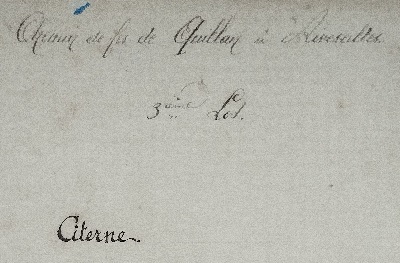 Chemin de fer de Quillan à Rivesaltes
3ème Lot.
Citerne